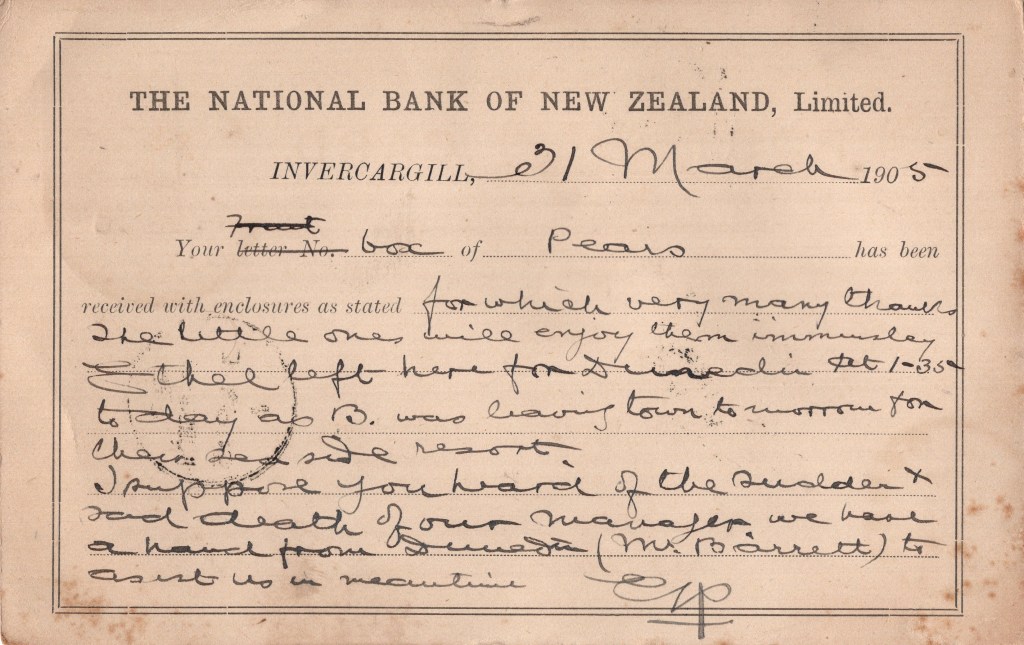 THE NATIONAL BANK OF NEW ZEALAND, Limited.
INVERCARGILL, 31 March 1905
Your letter No. box of Pears has been
received with enclosures as stated for which very many thanks
The little ones will enjoy them immensley
Ethel left here for Dunedin at 1-35
to day as B. was leaving town to morrow for
their sea side resort.
I suppose you heard of the sudden &
sad death of our manager we have
a hand from Dunedin (Mr. Barrett) to
assist us in meantime